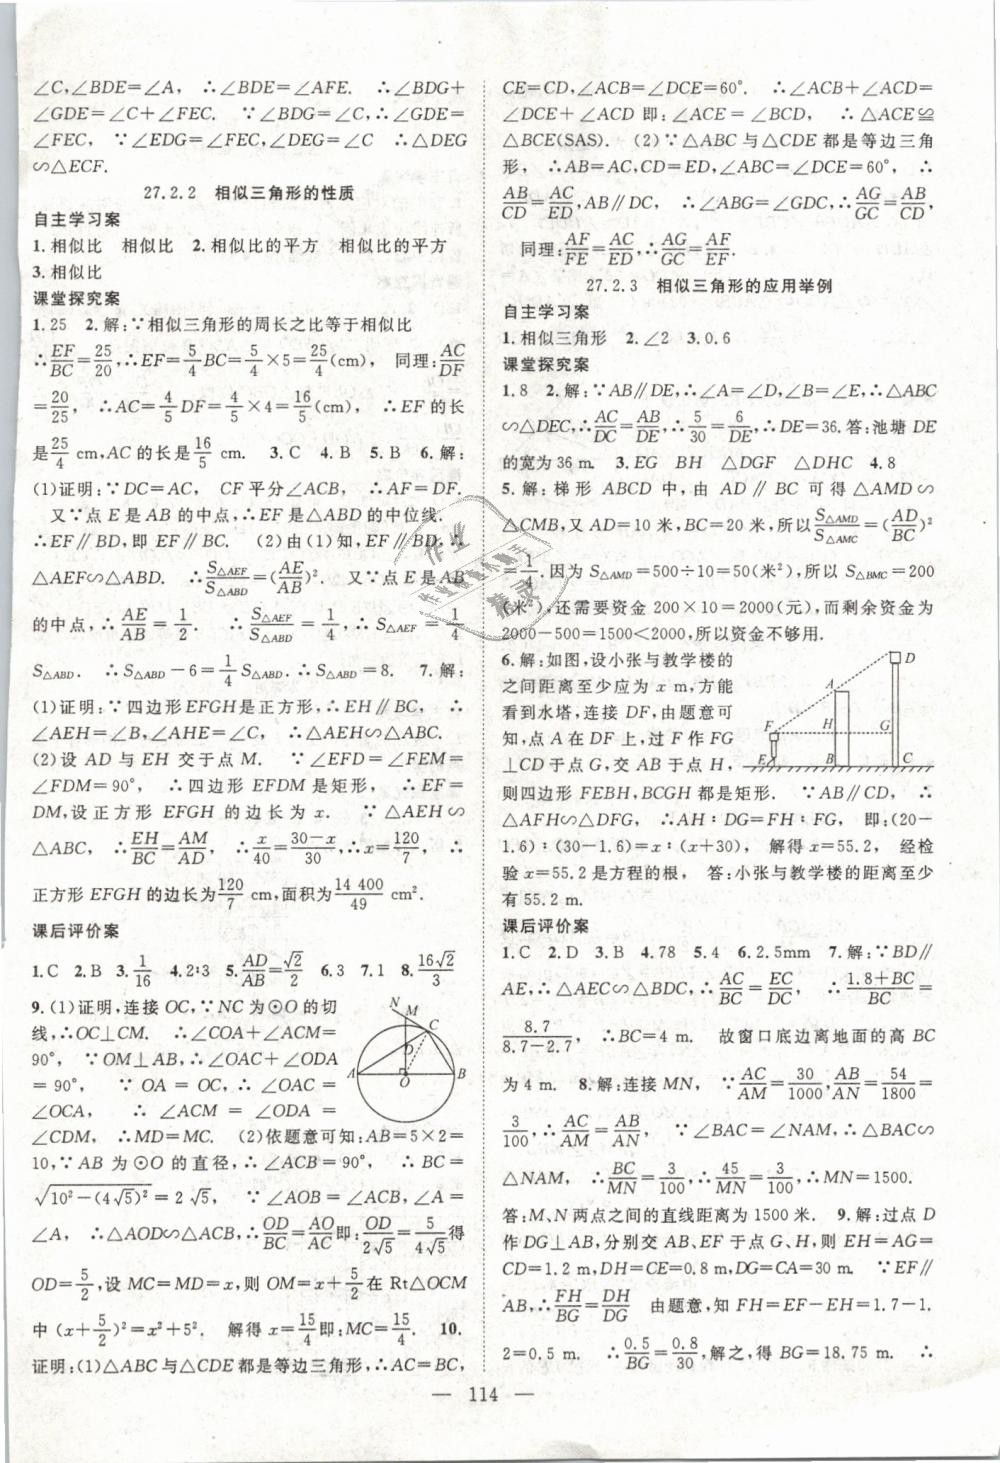 ∠C,∠BDE=∠A, ∴∠BDE=∠AFE. ∴∠BDG+
∠GDE=∠C+∠FEC. ∵∠BDG=∠C,∴∠GDE=
∠FEC, ∵∠EDG=∠FEC,∠DEG=∠C ∴△DEG
∽△ECF.
27.2.2 相似三角形的性质
自主学习案
1.相似比 相似比 2.相似比的平方 相似比的平方
3.相似比
课堂探究案
1.25 2.解:∵相似三角形的周长之比等于相似比
∴EF/BC=25/20,∴EF=5/4BC=5/4×5=25/4(cm), 同理:AC/DF
=20/25, ∴AC=4/5DF=4/5×4=16/5(cm), ∴EF的长
是25/4 cm,AC的长是16/5 cm. 3.C 4.B 5.B 6.解:
(1)证明:∵DC=AC, CF平分∠ACB, ∴AF=DF.
又∵点E是AB的中点,∴EF是△ABD的中位线.
∴EF∥BD,即EF∥BC. (2)由(1)知,EF∥BD, ∴
△AEF∽△ABD. ∴S△AEF/S△ABD=(AE/AB)². 又∵点E是AB
的中点,∴AE/AB=1/2. ∴S△AEF/S△ABD=1/4, ∴S△AEF=1/4
S△ABD. ∴S△ABD-6=1/4S△ABD.∴S△ABD=8. 7.解:
(1)证明:∵四边形EFGH是正方形,∴EH∥BC, ∴
∠AEH=∠B,∠AHE=∠C, ∴△AEH∽△ABC.
(2)设AD与EH交于点M. ∵∠EFD=∠FEM=
∠FDM=90°, ∴四边形EFDM是矩形, ∴EF=
DM,设正方形EFGH的边长为x. ∵△AEH∽
△ABC, ∴EH/BC=AM/AD, ∴x/40=30-x/30,∴x=120/7, ∴
正方形EFGH的边长为120/7 cm,面积为14 400/49 cm².
课后评价案
1.C 2.B 3.1/16 4.2∶3 5.AD/AB=√2/2 6.3 7.1 8.16√2/3
9.(1)证明,连接OC,∵NC为⊙O的切
线,∴OC⊥CM. ∴∠COA+∠ACM=
90°, ∵OM⊥AB,∴∠OAC+∠ODA
=90°, ∵OA=OC, ∴∠OAC=
∠OCA, ∴∠ACM=∠ODA=
∠CDM, ∴MD=MC. (2)依题意可知:AB=5×2=
10,∵AB为⊙O的直径,∴∠ACB=90°, ∴BC=
√10²-(4√5)²=2√5, ∵∠AOB=∠ACB,∠A=
∠A, ∴△AOD∽△ACB,∴OD/BC=AO/AC即:OD/2√5=5/4√5得
OD=5/2,设MC=MD=x,则OM=x+5/2在Rt△OCM
中(x+5/2)²=x²+5². 解得x=15/4即:MC=15/4. 10.
证明:(1)△ABC与△CDE都是等边三角形,∴AC=BC,
N M C D A O B
CE=CD,∠ACB=∠DCE=60°. ∴∠ACB+∠ACD
=∠DCE+∠ACD即:∠ACE=∠BCD, ∴△ACE≌
△BCE(SAS). (2)∵△ABC与△CDE都是等边三角
形, ∴AB=AC,CD=ED,∠ABC=∠DCE=60°, ∴
AB/CD=AC/ED,AB∥DC, ∴∠ABG=∠GDC,∴AG/GC=AB/CD,
同理:AF/FE=AC/ED,∴AG/GC=AF/EF.
27.2.3 相似三角形的应用举例
自主学习案
1.相似三角形 2.∠2 3.0.6
课堂探究案
1.8 2.解:∵AB∥DE,∴∠A=∠D,∠B=∠E,∴△ABC
∽△DEC,∴AC/DC=AB/DE,∴5/30=6/DE,∴DE=36.答:池塘DE
的宽为36 m. 3.EG BH △DGF △DHC 4.8
5.解:梯形ABCD中,由AD∥BC可得△AMD∽
△CMB,又AD=10米,BC=20米,所以S△AMD/S△AMC=(AD/BC)²
=1/4.因为S△AMD=500÷10=50(米²),所以S△BMC=200
(米²),还需要资金200×10=2000(元),而剩余资金为
2000-500=1500<2000,所以资金不够用.
6.解:如图,设小张与教学楼的
之间距离至少应为x m,方能
看到水塔,连接DF,由题意可
知,点A在DF上,过F作FG
⊥CD于点G,交AB于点H,
则四边形FEBH,BCGH都是矩形. ∵AB∥CD, ∴
△AFH∽△DFG, ∴AH∶DG=FH∶FG, 即:(20-
1.6)∶(30-1.6)=x∶(x+30), 解得x=55.2, 经检
验x=55.2是方程的根, 答:小张与教学楼的距离至少
有55.2 m.
D A F H G E B C
课后评价案
1.C 2.D 3.B 4.78 5.4 6.2.5mm 7.解:∵BD∥
AE,∴△AEC∽△BDC,∴AC/BC=EC/DC, ∴1.8+BC/BC=
8.7/8.7-2.7, ∴BC=4 m. 故窗口底边离地面的高BC
为4 m. 8.解:连接MN, ∵AC/AM=30/1000,AB/AN=54/1800=
3/100,∴AC/AM=AB/AN, ∵∠BAC=∠NAM,∴△BAC∽
△NAM, ∴BC/MN=3/100,∴45/MN=3/100,∴MN=1500.
答:M、N两点之间的直线距离为1500米. 9.解:过点D
作DG⊥AB,分别交AB、EF于点G、H,则EH=AG=
CD=1.2 m,DH=CE=0.8 m,DG=CA=30 m. ∵EF∥
AB,∴FH/BG=DH/DG 由题意,知FH=EF-EH=1.7-1.
2=0.5 m. ∴0.5/BG=0.8/30,解之,得BG=18.75 m. ∴
— 114 —